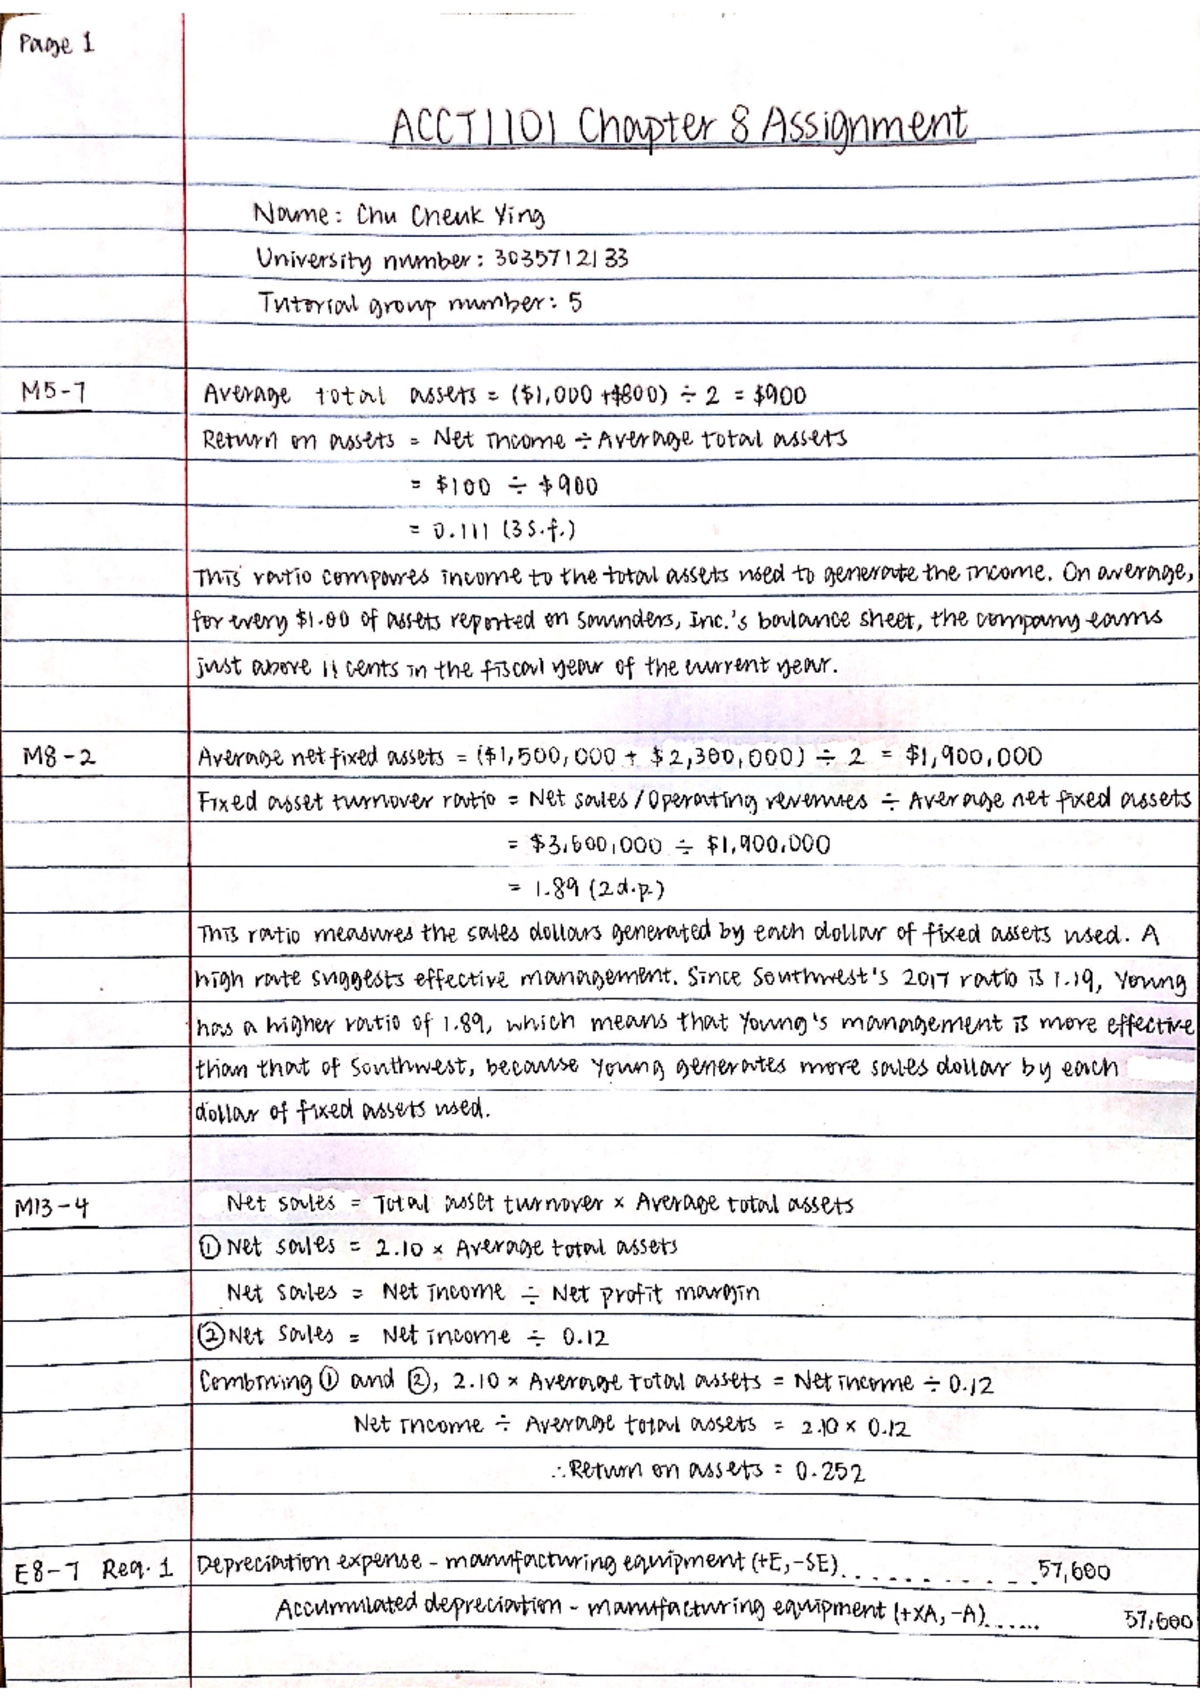 Page 1
ACCT1101 Chapter 8 Assignment
Name: Chu Cheuk Ying
University number: 3035712133
Tutorial group number: 5
M5-7 Average total assets = ($1,000 + $800) ÷ 2 = $900
Return on assets = Net income ÷ Average total assets
= $100 ÷ $900
= 0.111 (3 s.f.)
This ratio compares income to the total assets used to generate the income. On average,
for every $1.00 of assets reported on Saunders, Inc.'s balance sheet, the company earns
just above 11 cents in the fiscal year of the current year.
M8-2 Average net fixed assets = ($1,500,000 + $2,300,000) ÷ 2 = $1,900,000
Fixed asset turnover ratio = Net sales / Operating revenues ÷ Average net fixed assets
= $3,600,000 ÷ $1,900,000
= 1.89 (2 d.p.)
This ratio measures the sales dollars generated by each dollar of fixed assets used. A
high rate suggests effective management. Since Southwest's 2017 ratio is 1.19, Young
has a higher ratio of 1.89, which means that Young's management is more effective
than that of Southwest, because Young generates more sales dollar by each
dollar of fixed assets used.
M13-4 Net sales = Total asset turnover × Average total assets
① Net sales = 2.10 × Average total assets
Net sales = Net income ÷ Net profit margin
② Net sales = Net income ÷ 0.12
Combining ① and ②, 2.10 × Average total assets = Net income ÷ 0.12
Net income ÷ Average total assets = 2.10 × 0.12
∴ Return on assets = 0.252
E8-7 Req. 1 Depreciation expense - manufacturing equipment (+E, -SE) ........... 57,600
Accumulated depreciation - manufacturing equipment (+XA, -A) ...... 57,600